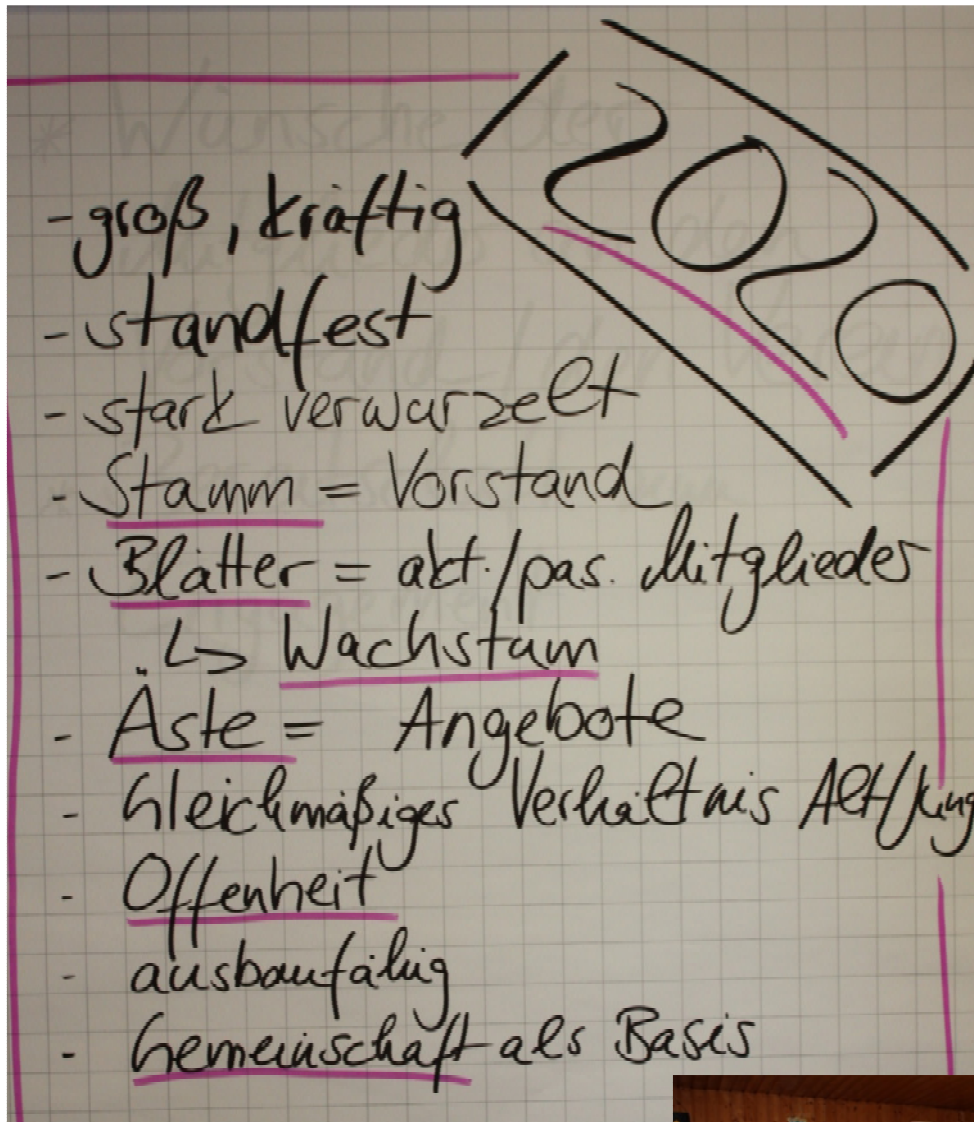 2020
- groß, kräftig
- standfest
- stark verwurzelt
- Stamm = Vorstand
- Blätter = akt./pas. Mitglieder
↳ Wachstum
- Äste = Angebote
- Gleichmäßiges Verhältnis Alt/Jung
- Offenheit
- ausbaufähig
- Gemeinschaft als Basis